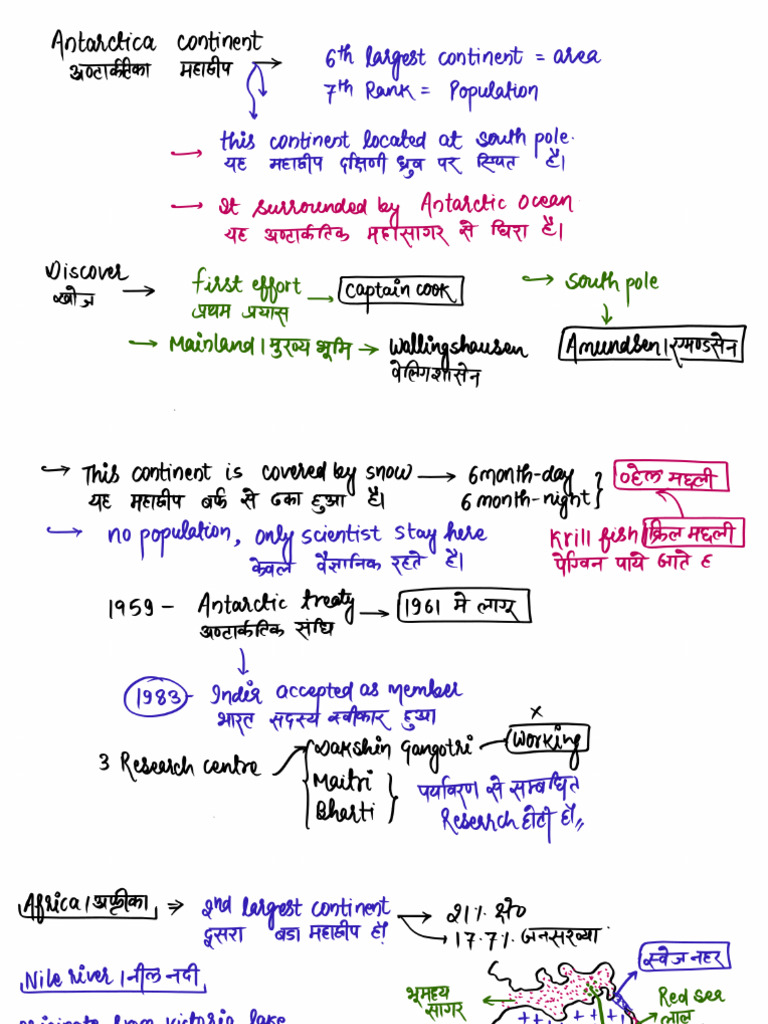 Antarctica continent → 6th largest continent = area
अण्टार्कटिका महाद्वीप
7th Rank = Population
→ this continent located at south pole.
यह महाद्वीप दक्षिणी ध्रुव पर स्थित है।
→ It surrounded by Antarctic ocean
यह अण्टार्कटिक महासागर से घिरा है।
Discover → first effort → Captain cook
खोज
प्रथम प्रयास
→ South pole
→ Mainland।मुख्य भूमि → Wallingshausen
वेलिंगशासेन
Amundsen।एमण्डसेन
→ This continent is covered by snow → 6 month-day
यह महाद्वीप बर्फ से ढका हुआ है।
6 month-night
व्हेल मछली
→ no population, only scientist stay here
केवल वैज्ञानिक रहते है।
Krill fish।क्रिल मछली
पेंग्विन पाये जाते ह
1959 - Antarctic treaty → 1961 मे लागू
अण्टार्कटिक संधि
1983 - India accepted as member
भारत सदस्य स्वीकार हुआ
3 Research centre → Dakshin Gangotri — Working
×
Maitri
Bharti
पर्यावरण से सम्बधित
Research होती है,,
Africa।अफ्रीका ⇒ 2nd largest continent → 21% क्षे०
दूसरा बडा महाद्वीप है।
→ 17.7% जनसख्या
Nile river।नील नदी
स्वेज नहर
भूमध्य सागर
Red sea
लाल
originate from victoria lake